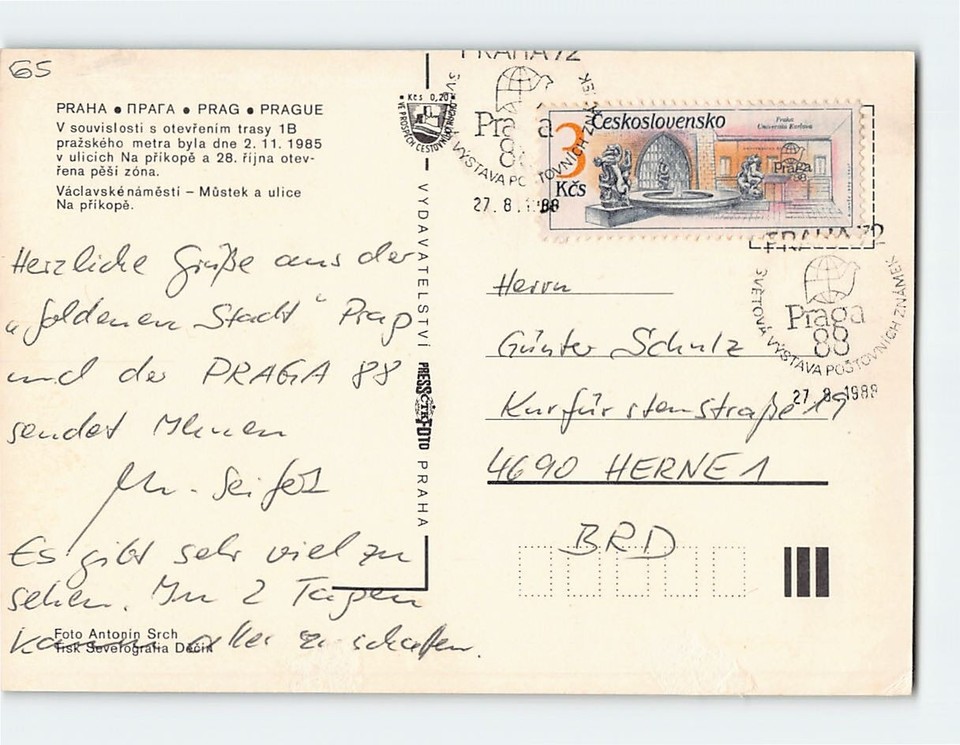 65
PRAHA • ПРАГА • PRAG • PRAGUE
V souvislosti s otevřením trasy 1B
pražského metra byla dne 2. 11. 1985
v ulicích Na příkopě a 28. října otev-
řena pěší zóna.
Václavské náměstí – Můstek a ulice
Na příkopě.
Herzliche Grüße aus der
„goldenen Stadt" Prag
und der PRAGA 88
sendet Ihnen
Es gibt sehr viel zu
sehen. In 2 Tagen
kaum alles zu schaffen.
Foto Antonín Srch
Tisk Severografia Děčín
Kčs 0,20
VE PROSPĚCH ČESTOVNÍHO RUCHU
VYDAVATELSTVÍ PRESSFOTO PRAHA
ČTK
PRAHA 72
Praga
88
SVĚTOVÁ VÝSTAVA POŠTOVNÍCH ZNÁMEK
27. 8. 1988
Československo
3
Kčs
Praha
Universita Karlova
Praga
88
PRAHA 72
Praga
88
SVĚTOVÁ VÝSTAVA POŠTOVNÍCH ZNÁMEK
27. 8. 1988
Herrn
Günter Schulz
Kurfürstenstraße 19
4690 HERNE 1
BRD